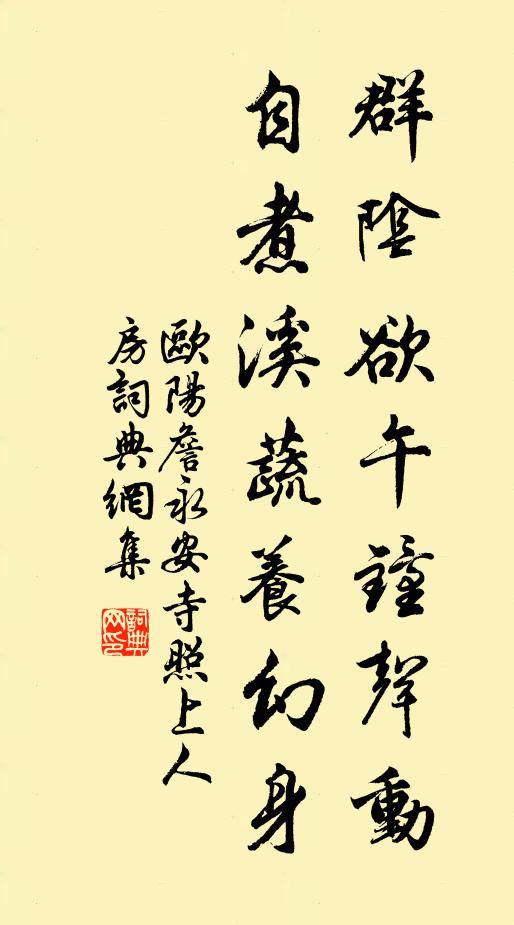 群陰欲午鐘聲動
自煮溪蔬養幻身
歐陽詹永安寺照上人
房詞典網集
詞典網印